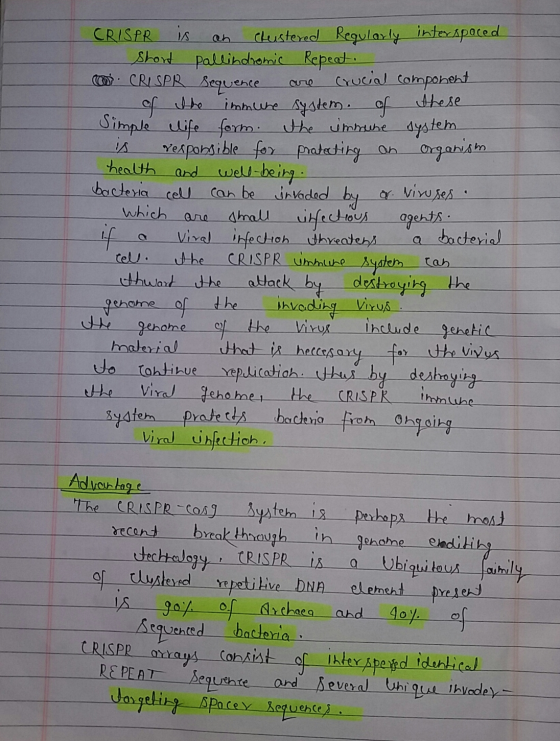 CRISPR is an clustered Regularly interspaced
short pallindromic Repeat.
CRISPR sequence are crucial component
of the immune system. of these
Simple life form. the immune system
is responsible for protating an organism
health and well-being.
bacteria cell can be invaded by or viruses.
which are small infectious agents.
if a viral infection threatens a bacterial
cell. the CRISPR immune system can
thwart the attack by destroying the
genome of the invading virus.
the genome of the virus include genetic
material that is neccesary for the virus
to continue replication. thus by destroying
the viral genome, the CRISPR immune
system protects bacteria from ongoing
viral infection.
Advantage
The CRISPR-cas9 system is perhaps the most
recent breakthrough in genome editing
technology. CRISPR is a Ubiquitous family
of clustered repetitive DNA element present
is 90% of Archaea and 40% of
Sequenced bacteria.
CRISPR arrays consist of interspersed identical
REPEAT sequence and several unique invader-
targeting spacer sequences.